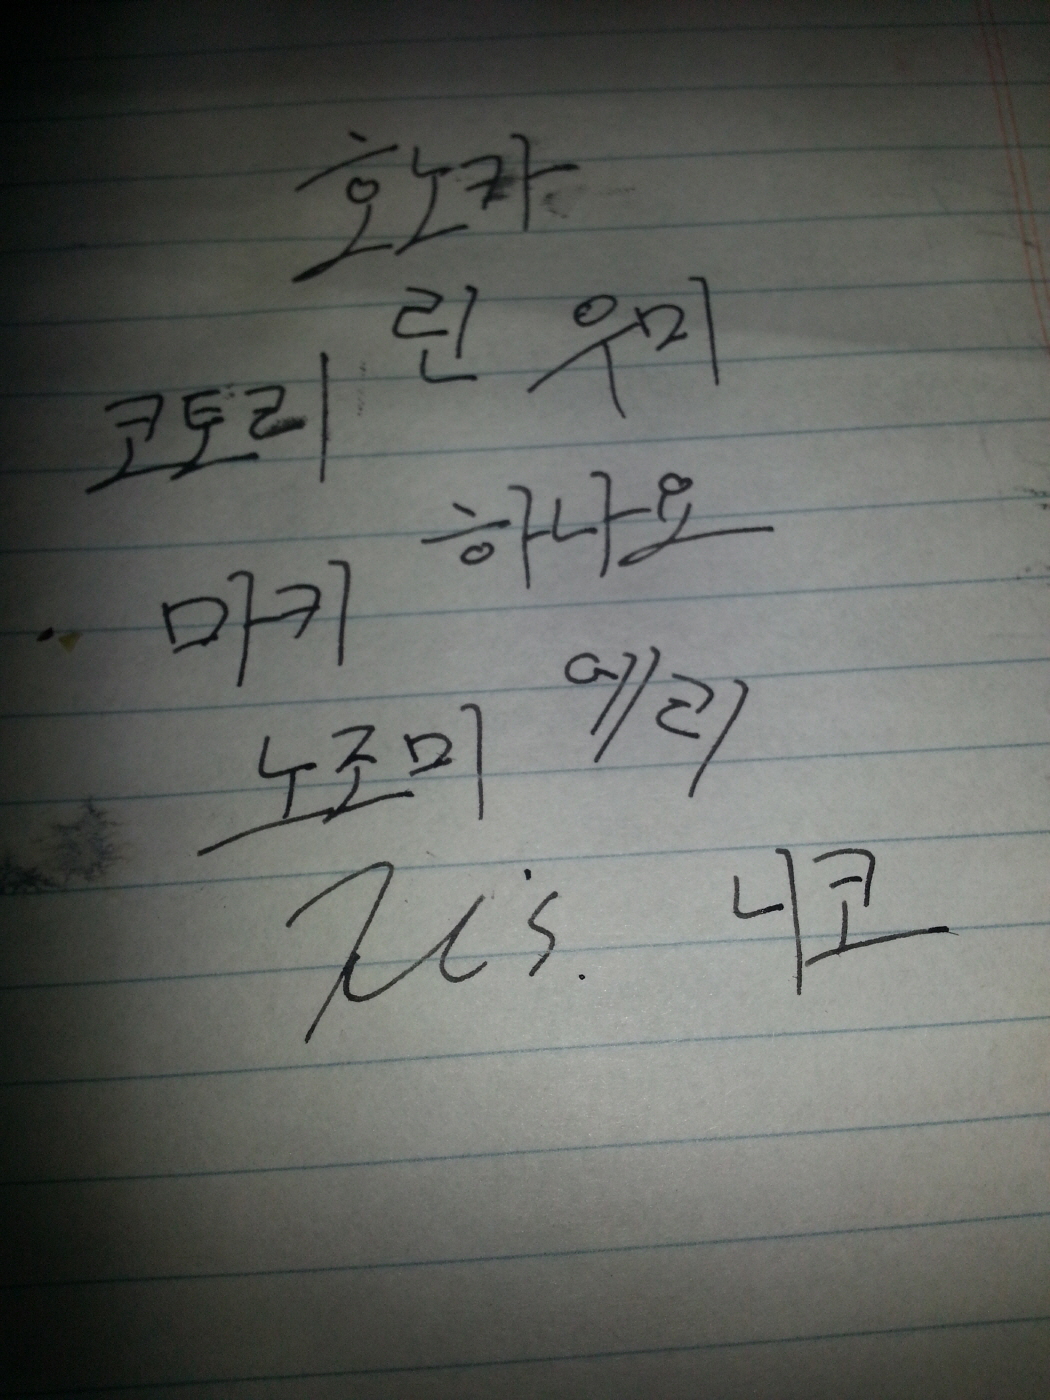 호노카
린 우미
코토리
하나요
마키
에리
노조미
μ's. 니코